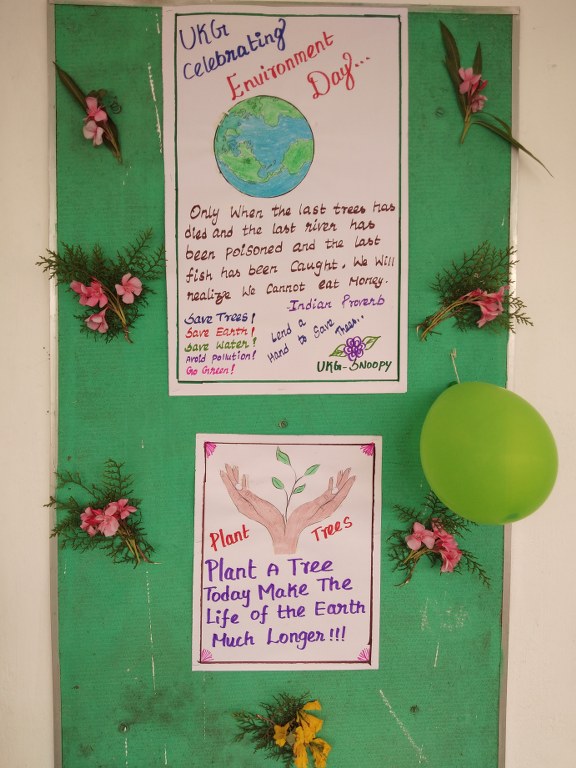 UKG
Celebrating
Environment
Day...
Only When the last trees has
died and the last river has
been poisoned and the last
fish has been Caught. We Will
realize We Cannot eat Money.
-Indian Proverb
Save Trees!
Save Earth!
Save Water!
Avoid Pollution!
Go Green!
Lend a
Hand to Save
Trees..
UKG-SNOOPY
Plant Trees
Plant A Tree
Today Make The
Life of the Earth
Much Longer!!!